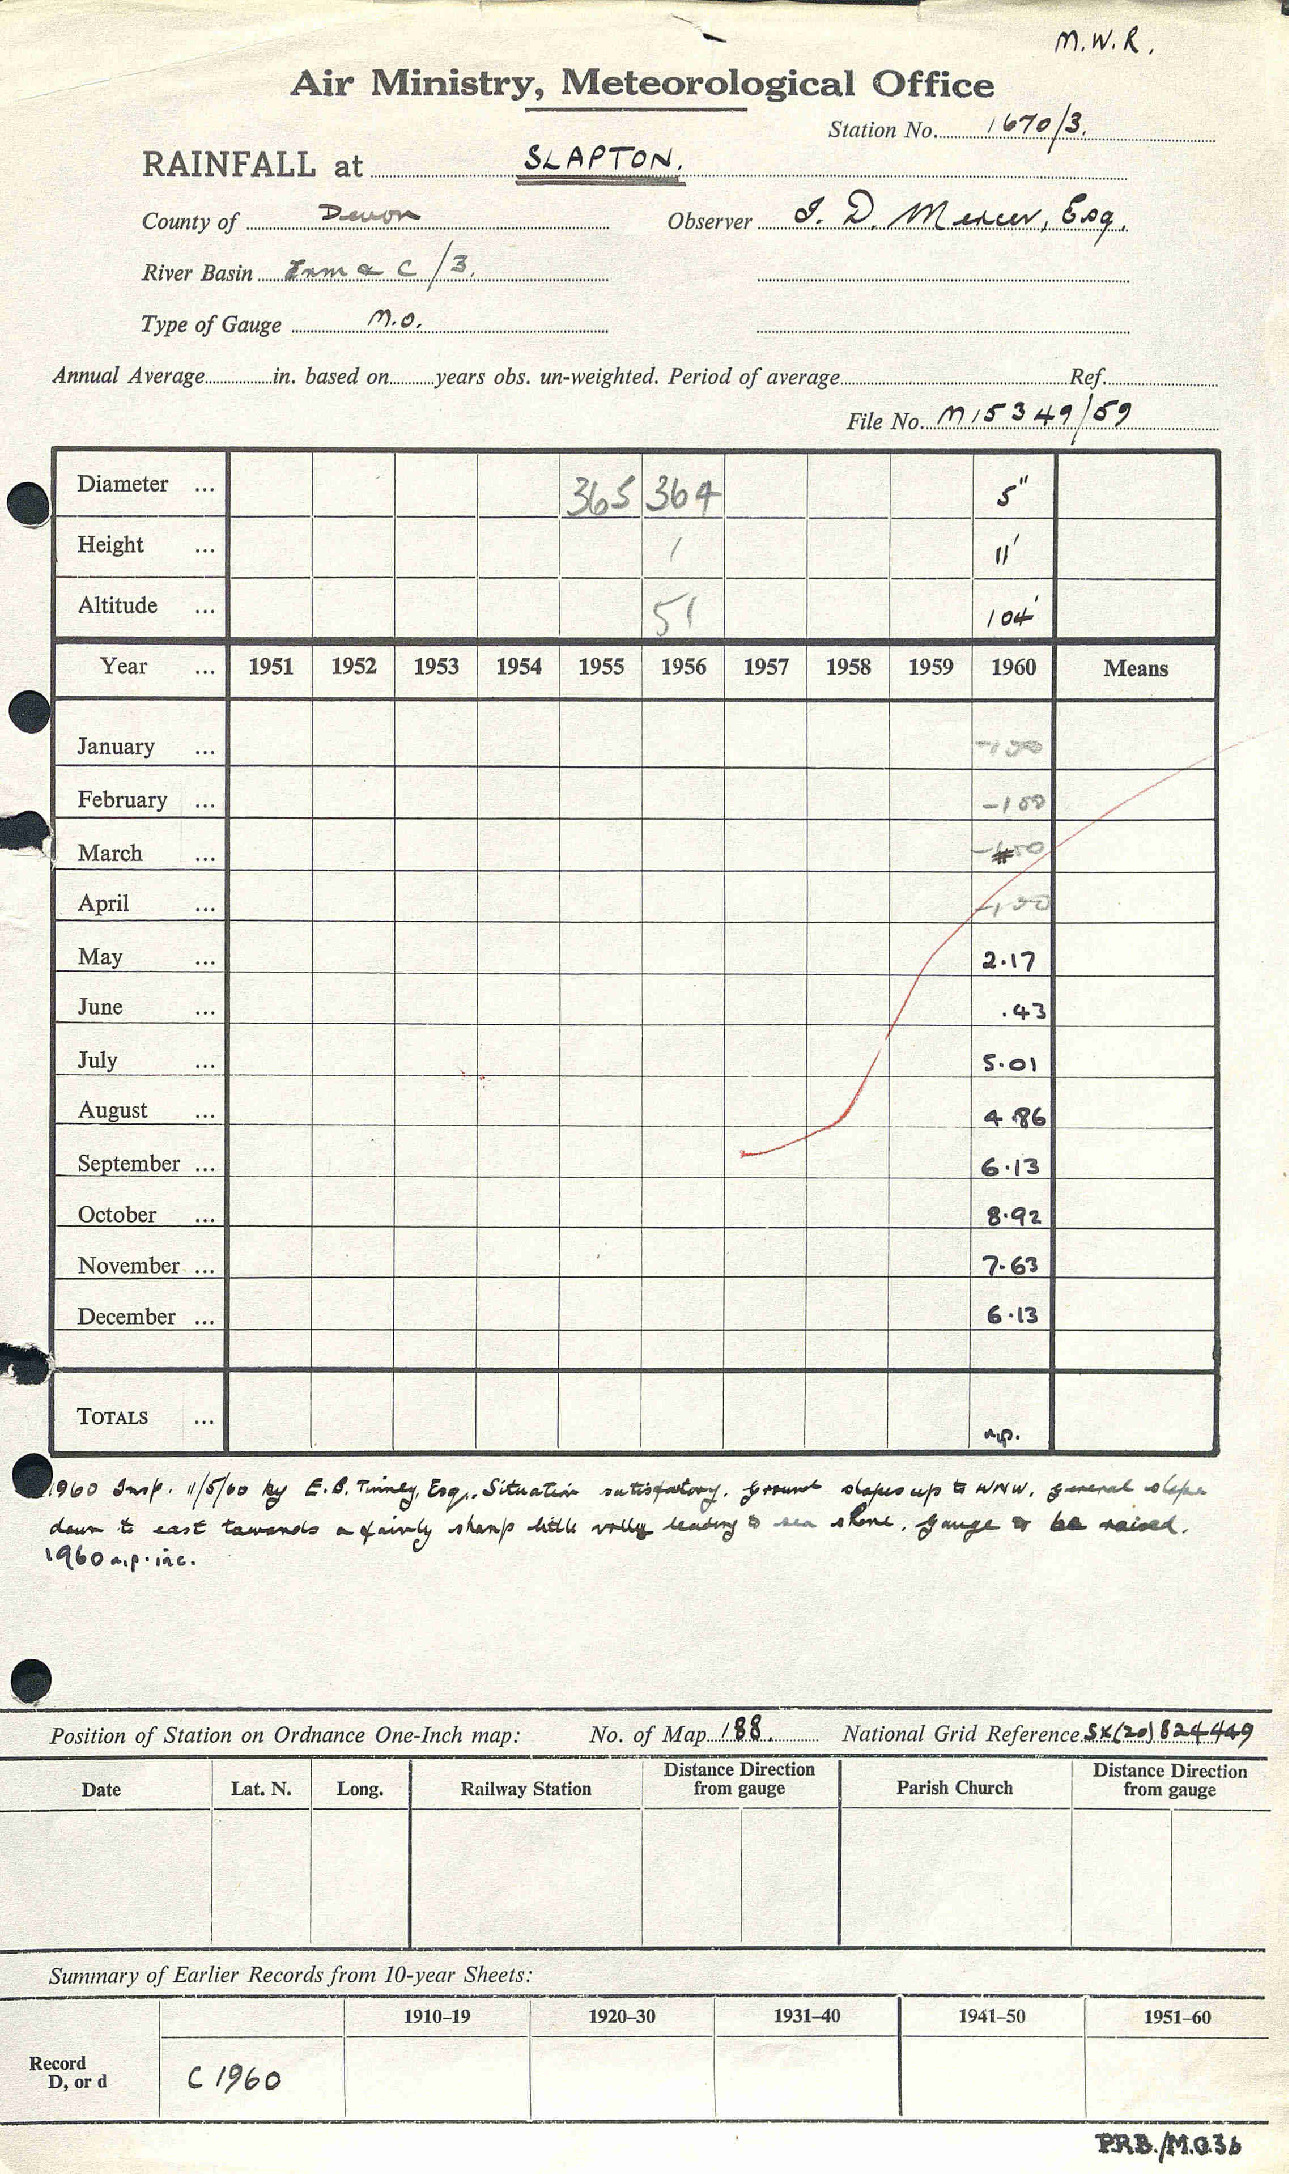 M.W.R.
Air Ministry, Meteorological Office
Station No. 1670/3.
RAINFALL at SLAPTON.
County of Devon Observer I. D. Mercer, Esq.
River Basin Erm & C/3.
Type of Gauge M.O.
Annual Average in. based on years obs. un-weighted. Period of average Ref.
File No. M15349/59
Diameter ... 365 364 5"
Height ... 1 11'
Altitude ... 51 104'
Year ... 1951 1952 1953 1954 1955 1956 1957 1958 1959 1960 Means
January ... -100
February ... -100
March ... -100
April ... -100
May ... 2.17
June ... .43
July ... 5.01
August ... 4.86
September ... 6.13
October ... 8.92
November ... 7.63
December ... 6.13
TOTALS ...
1960 Insp. 11/5/60 by E.B. Tinney, Esq., Situation satisfactory, ground slopes up to WNW, general slope
down to east towards a fairly sharp little valley leading to sea shore. gauge to be raised.
1960 inc.
Position of Station on Ordnance One-Inch map: No. of Map 188. National Grid Reference SX(20)824449
Date Lat. N. Long. Railway Station Distance Direction from gauge Parish Church Distance Direction from gauge
Summary of Earlier Records from 10-year Sheets:
1910–19 1920–30 1931–40 1941–50 1951–60
Record
D, or d C 1960
P.R.B./M.O.3b